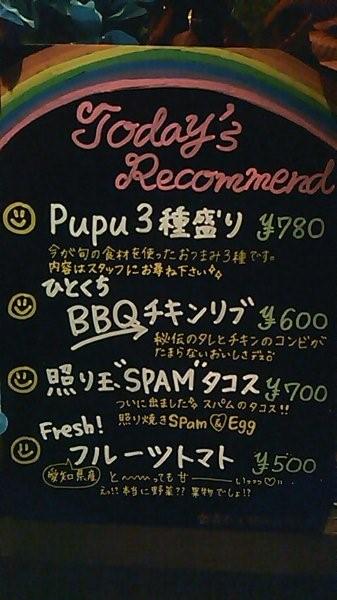 Today's
Recommend
Pupu 3種盛り ¥780
今が旬の食材を使ったおつまみ3種です。
内容はスタッフにお尋ね下さい
ひとくち
BBQチキンリブ ¥600
秘伝のタレとチキンのコンビが
たまらないおいしさデス
照り玉"SPAM"タコス ¥700
ついに出ました スパムのタコス!!
照り焼きSpam & Egg
Fresh!
フルーツトマト ¥500
愛知県産 と〜〜っても甘——いっっっ♡"
えっ!?本当に野菜?? 果物でしょ!?